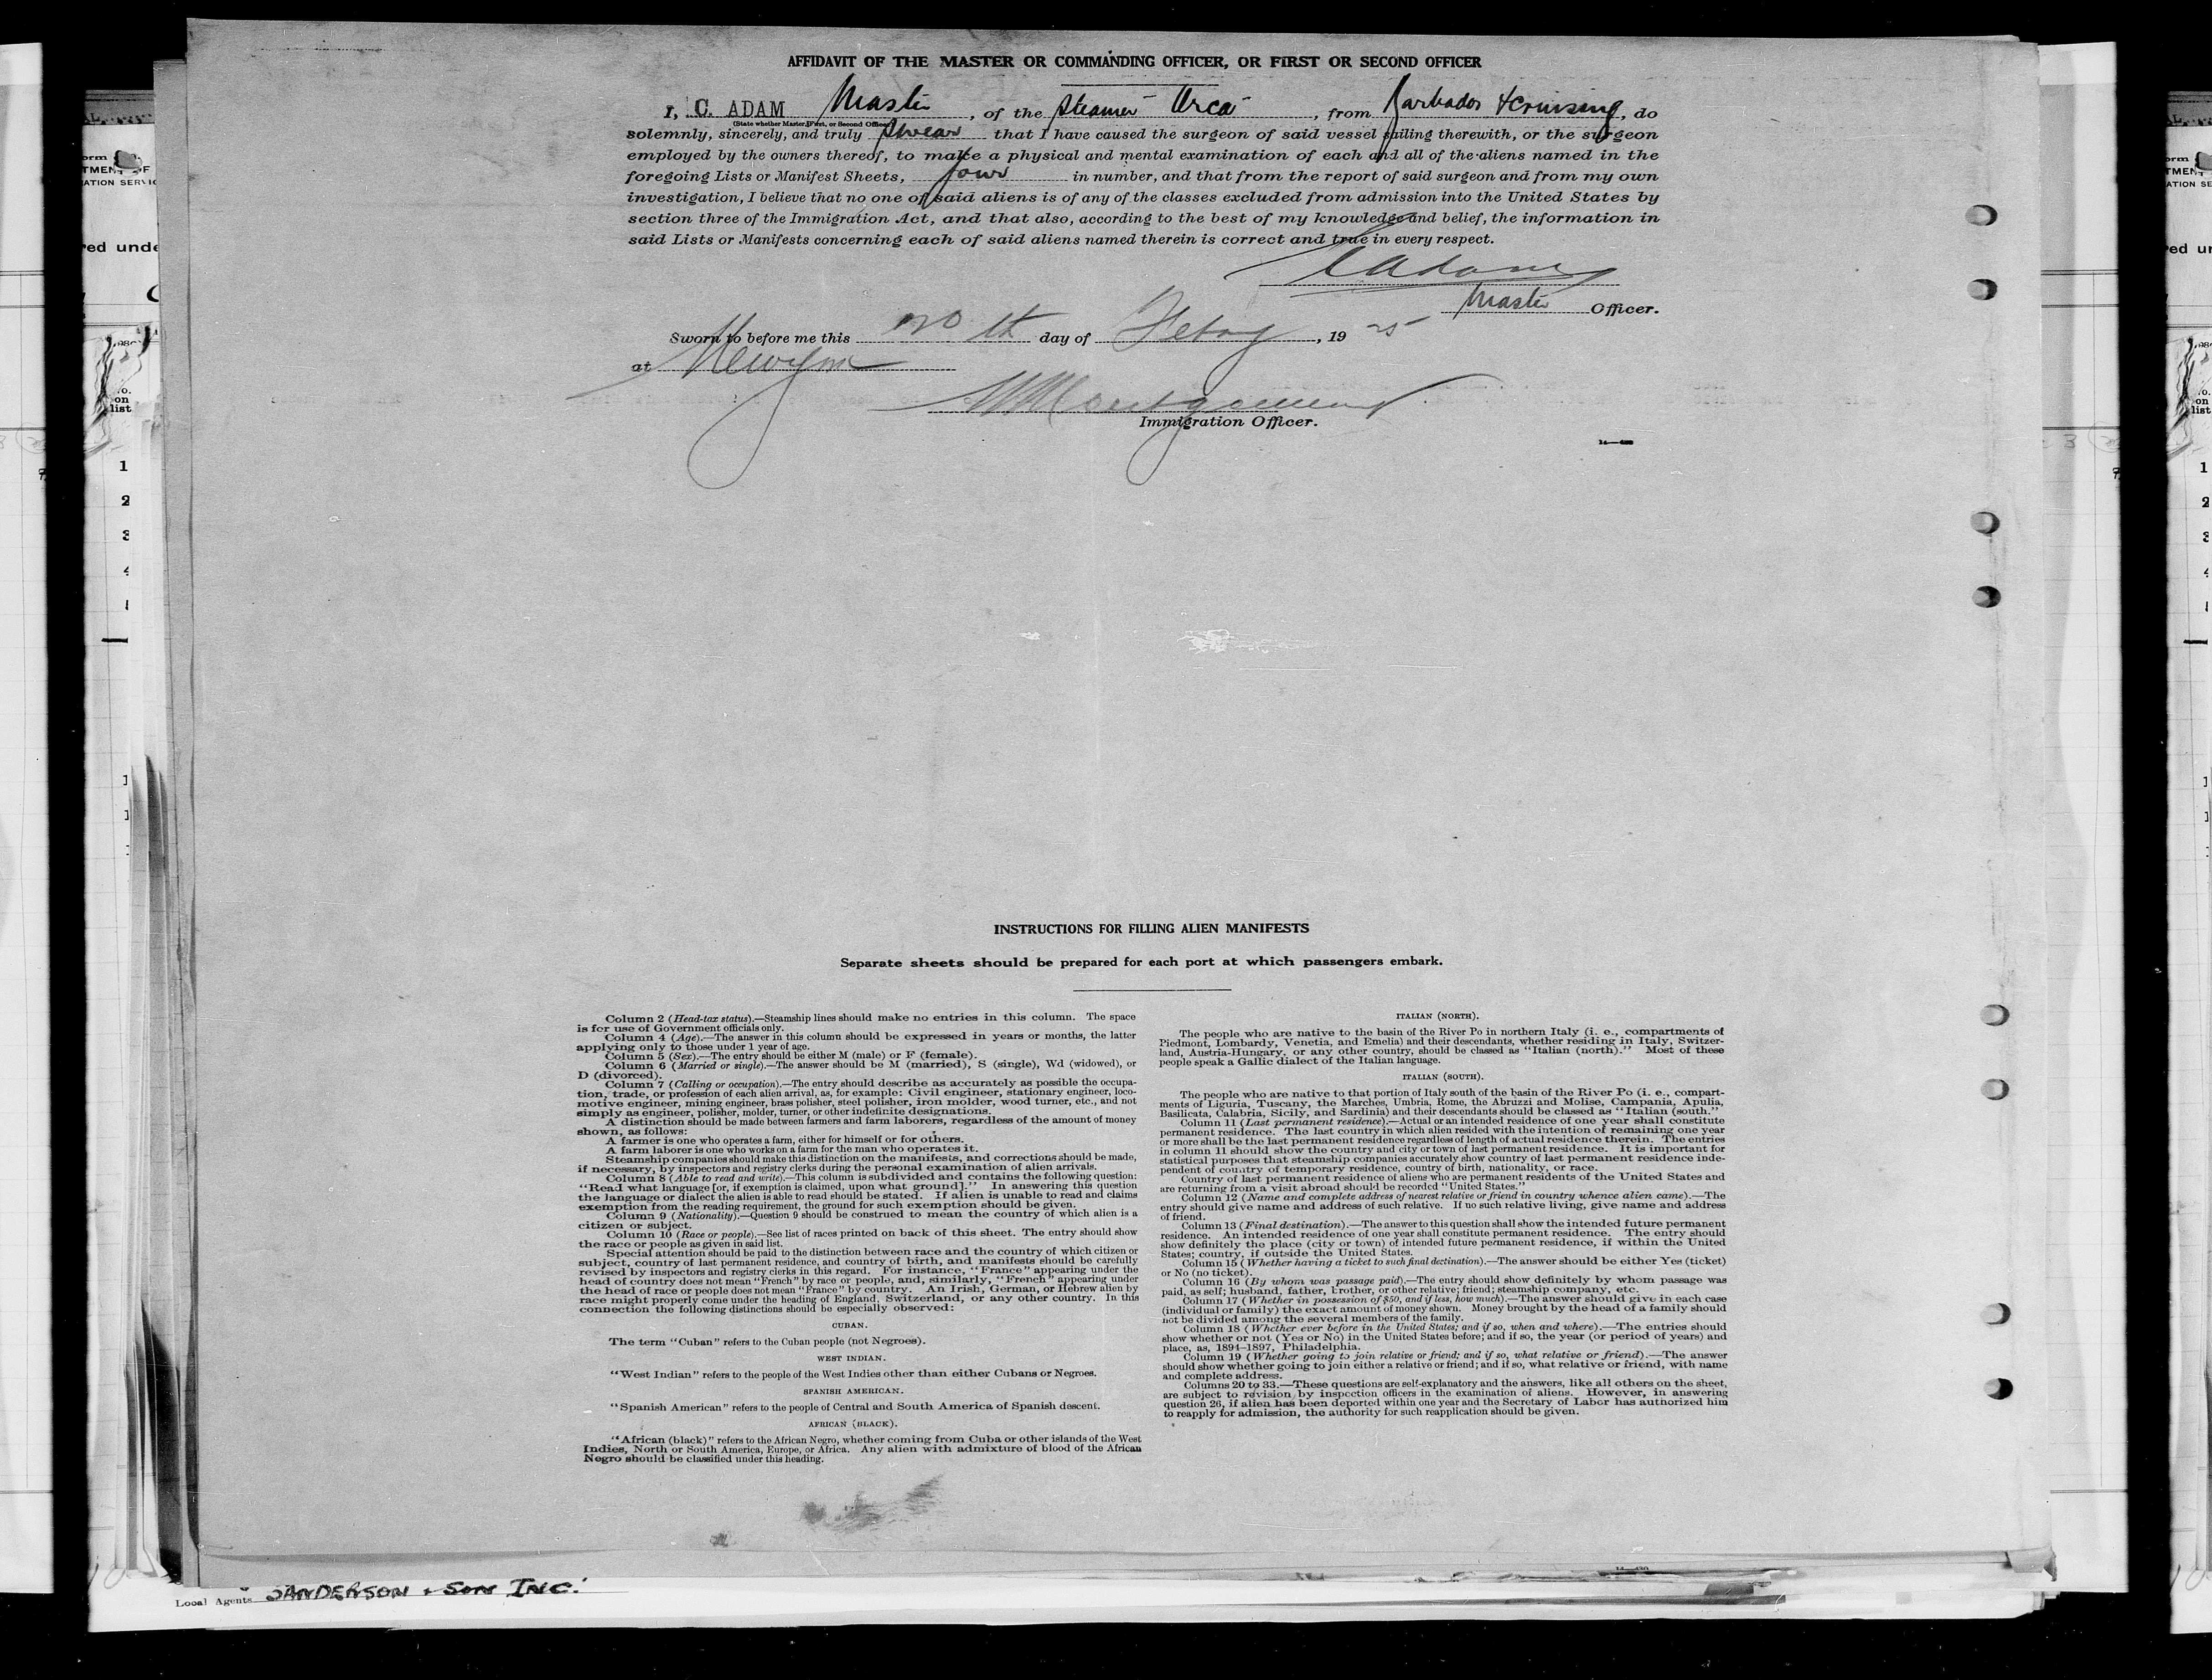 AFFIDAVIT OF THE MASTER OR COMMANDING OFFICER, OR FIRST OR SECOND OFFICER
I, C. ADAM Master, of the Steamer "Orca", from Barbados & cruising, do
(State whether Master, First, or Second Officer)
solemnly, sincerely, and truly swear that I have caused the surgeon of said vessel sailing therewith, or the surgeon
employed by the owners thereof, to make a physical and mental examination of each and all of the aliens named in the
foregoing Lists or Manifest Sheets, four in number, and that from the report of said surgeon and from my own
investigation, I believe that no one of said aliens is of any of the classes excluded from admission into the United States by
section three of the Immigration Act, and that also, according to the best of my knowledge and belief, the information in
said Lists or Manifests concerning each of said aliens named therein is correct and true in every respect.
C Adam
Master Officer.
Sworn to before me this 20th day of Febry, 1925
at New York
Montgomery
Immigration Officer.
INSTRUCTIONS FOR FILLING ALIEN MANIFESTS
Separate sheets should be prepared for each port at which passengers embark.
Column 2 (Head-tax status).—Steamship lines should make no entries in this column. The space
is for use of Government officials only.
Column 4 (Age).—The answer in this column should be expressed in years or months, the latter
applying only to those under 1 year of age.
Column 5 (Sex).—The entry should be either M (male) or F (female).
Column 6 (Married or single).—The answer should be M (married), S (single), Wd (widowed), or
D (divorced).
Column 7 (Calling or occupation).—The entry should describe as accurately as possible the occupa-
tion, trade, or profession of each alien arrival, as, for example: Civil engineer, stationary engineer, loco-
motive engineer, mining engineer, brass polisher, steel polisher, iron molder, wood turner, etc., and not
simply as engineer, polisher, molder, turner, or other indefinite designations.
A distinction should be made between farmers and farm laborers, regardless of the amount of money
shown, as follows:
A farmer is one who operates a farm, either for himself or for others.
A farm laborer is one who works on a farm for the man who operates it.
Steamship companies should make this distinction on the manifests, and corrections should be made,
if necessary, by inspectors and registry clerks during the personal examination of alien arrivals.
Column 8 (Able to read and write).—This column is subdivided and contains the following question:
"Read what language [or, if exemption is claimed, upon what ground]." In answering this question
the language or dialect the alien is able to read should be stated. If alien is unable to read and claims
exemption from the reading requirement, the ground for such exemption should be given.
Column 9 (Nationality).—Question 9 should be construed to mean the country of which alien is a
citizen or subject.
Column 10 (Race or people).—See list of races printed on back of this sheet. The entry should show
the race or people as given in said list.
Special attention should be paid to the distinction between race and the country of which citizen or
subject, country of last permanent residence, and country of birth, and manifests should be carefully
revised by inspectors and registry clerks in this regard. For instance, "France" appearing under the
head of country does not mean "French" by race or people, and, similarly, "French" appearing under
the head of race or people does not mean "France" by country. An Irish, German, or Hebrew alien by
race might properly come under the heading of England, Switzerland, or any other country. In this
connection the following distinctions should be especially observed:
CUBAN.
The term "Cuban" refers to the Cuban people (not Negroes).
WEST INDIAN.
"West Indian" refers to the people of the West Indies other than either Cubans or Negroes.
SPANISH AMERICAN.
"Spanish American" refers to the people of Central and South America of Spanish descent.
AFRICAN (BLACK).
"African (black)" refers to the African Negro, whether coming from Cuba or other islands of the West
Indies, North or South America, Europe, or Africa. Any alien with admixture of blood of the African
Negro should be classified under this heading.
ITALIAN (NORTH).
The people who are native to the basin of the River Po in northern Italy (i. e., compartments of
Piedmont, Lombardy, Venetia, and Emelia) and their descendants, whether residing in Italy, Switzer-
land, Austria-Hungary, or any other country, should be classed as "Italian (north)." Most of these
people speak a Gallic dialect of the Italian language.
ITALIAN (SOUTH).
The people who are native to that portion of Italy south of the basin of the River Po (i. e., compart-
ments of Liguria, Tuscany, the Marches, Umbria, Rome, the Abruzzi and Molise, Campania, Apulia,
Basilicata, Calabria, Sicily, and Sardinia) and their descendants should be classed as "Italian (south."
Column 11 (Last permanent residence).—Actual or an intended residence of one year shall constitute
permanent residence. The last country in which alien resided with the intention of remaining one year
or more shall be the last permanent residence regardless of length of actual residence therein. The entries
in column 11 should show the country and city or town of last permanent residence. It is important for
statistical purposes that steamship companies accurately show country of last permanent residence inde-
pendent of country of temporary residence, country of birth, nationality, or race.
Country of last permanent residence of aliens who are permanent residents of the United States and
are returning from a visit abroad should be recorded "United States."
Column 12 (Name and complete address of nearest relative or friend in country whence alien came).—The
entry should give name and address of such relative. If no such relative living, give name and address
of friend.
Column 13 (Final destination).—The answer to this question shall show the intended future permanent
residence. An intended residence of one year shall constitute permanent residence. The entry should
show definitely the place (city or town) of intended future permanent residence, if within the United
States; country, if outside the United States.
Column 15 (Whether having a ticket to such final destination).—The answer should be either Yes (ticket)
or No (no ticket).
Column 16 (By whom was passage paid).—The entry should show definitely by whom passage was
paid, as self; husband, father, brother, or other relative; friend; steamship company, etc.
Column 17 (Whether in possession of $50, and if less, how much).—The answer should give in each case
(individual or family) the exact amount of money shown. Money brought by the head of a family should
not be divided among the several members of the family.
Column 18 (Whether ever before in the United States; and if so, when and where).—The entries should
show whether or not (Yes or No) in the United States before; and if so, the year (or period of years) and
place, as, 1894-1897, Philadelphia.
Column 19 (Whether going to join relative or friend; and if so, what relative or friend).—The answer
should show whether going to join either a relative or friend; and if so, what relative or friend, with name
and complete address.
Columns 20 to 33.—These questions are self-explanatory and the answers, like all others on the sheet,
are subject to revision by inspection officers in the examination of aliens. However, in answering
question 26, if alien has been deported within one year and the Secretary of Labor has authorized him
to reapply for admission, the authority for such reapplication should be given.
Local Agents SANDERSON & SON INC.